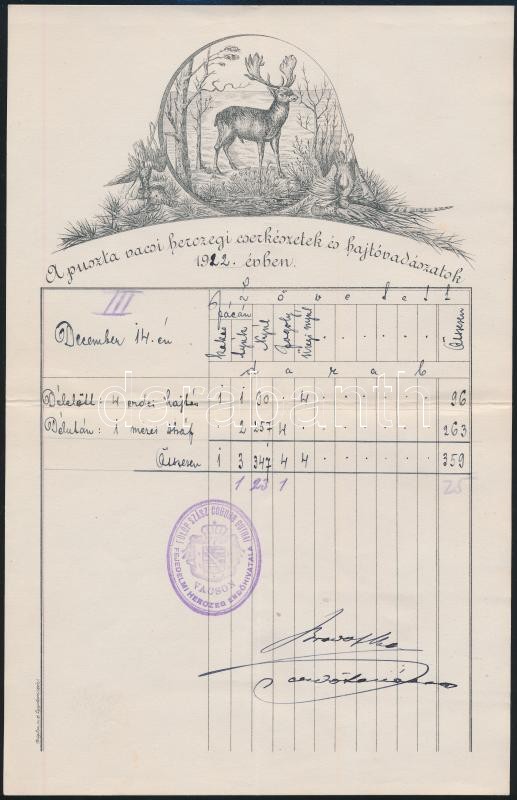 A puszta vacsi herczegi cserkészetek és hajtóvadászatok
1922. évben.
III
December 14.-én
Lövetett
Fácán
kakas tyúk Nyúl Fogoly Üregi nyúl Összesen
darab
Délelőtt: 4 erdei hajtás 1 1 90 . 4 96
Délután: 1 mezei 2 257 4 263
Összesen 1 3 347 4 4 359
1 23 1 25
FÜLÖP SZÁSZ COBURG GOTHAI
FEJEDELMI HERCZEG ERDŐHIVATALA
VACSON
darabanth